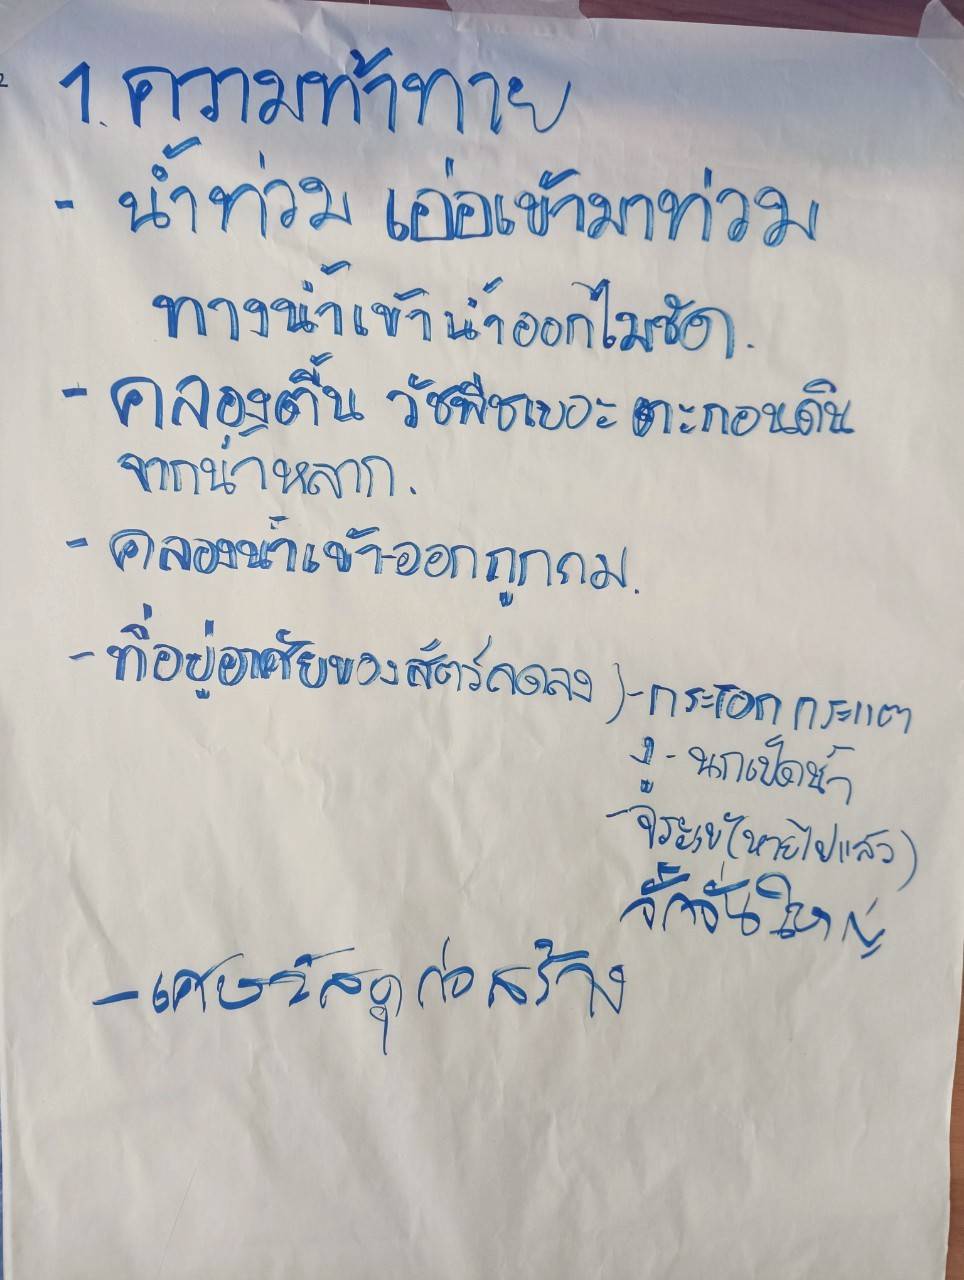 1. ความท้าทาย
- น้ำท่วม เอ่อเข้ามาท่วม
ทางน้ำเข้าน้ำออกไม่ชัด.
- คลองตื้น วัชพืชเยอะ ตะกอนดิน
จากน้ำหลาก.
- คลองน้ำเข้า-ออกถูกถม.
- ที่อยู่อาศัยของสัตว์ลดลง ) - กระรอก กระแต
งู - นกเป็ดน้ำ
- จระเข้ (หายไปแล้ว)
จั๊กจั่นใหญ่
- เศษวัสดุก่อสร้าง